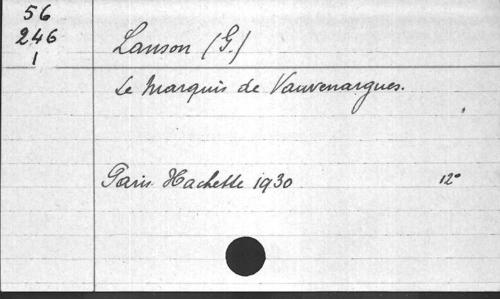 56
246
1
Lanson (G.)
Le Marquis de Vauvenargues.
Paris Hachette 1930 12°